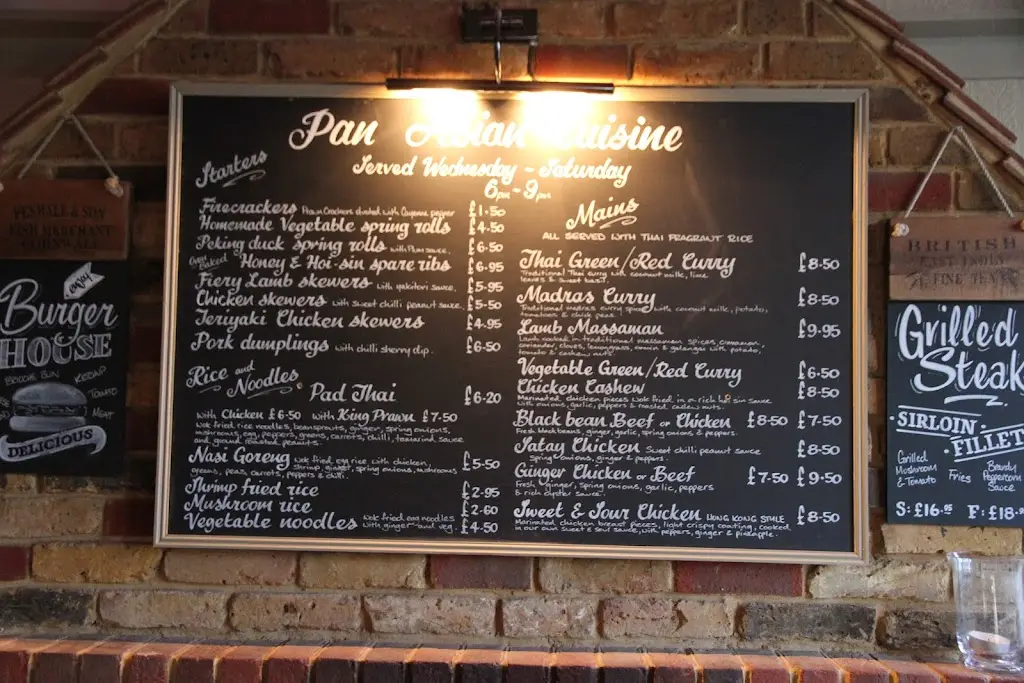 Pan Asian Cuisine
Served Wednesday - Saturday
6pm - 9pm
Starters
Firecrackers Prawn Crackers dusted with Cayenne pepper £1.50
Homemade Vegetable spring rolls £4.50
Peking duck spring rolls with Plum sauce. £6.50
Oven Baked Honey & Hoi-sin spare ribs £6.95
Fiery Lamb skewers with yakitori sauce. £5.95
Chicken skewers with sweet chilli peanut sauce. £5.50
Teriyaki Chicken skewers £4.95
Pork dumplings with chilli sherry dip. £6.50
Rice and Noodles
Pad Thai £6.20
with Chicken £6.50 with King Prawn £7.50
Wok fried rice noodles, beansprouts, ginger, spring onions,
mushrooms, egg, peppers, greens, carrots, chilli, tamarind sauce
and ground roasted peanuts.
Nasi Goreng Wok fried egg rice with chicken, £5.50
shrimp, ginger, spring onions, mushrooms
greens, peas, carrots, peppers & chilli.
Shrimp fried rice £2.95
Mushroom rice £2.60
Vegetable noodles Wok fried egg noodles with ginger and veg £4.50
Mains
ALL SERVED WITH THAI FRAGRANT RICE
Thai Green/Red Curry £8.50
Traditional Thai curry with coconut milk, lime
leaves & sweet basil.
Madras Curry £8.50
Traditional madras curry spices with coconut milk, potato,
tomatoes & chick peas.
Lamb Massaman £9.95
Lamb cooked in traditional massaman spices, cinnamon,
coriander, cloves, lemongrass, cumin & galangal with potato,
tomato & cashew nuts.
Vegetable Green/Red Curry £6.50
Chicken Cashew £8.50
Marinated chicken pieces wok fried in a rich hoi sin sauce
with onions, garlic, peppers & roasted cashew nuts.
Black bean Beef or Chicken £8.50 £7.50
Fresh black beans, ginger, garlic, spring onions & peppers.
Satay Chicken Sweet chilli peanut sauce £8.50
spring onions, ginger & peppers.
Ginger Chicken or Beef £7.50 £9.50
Fresh ginger, spring onions, garlic, peppers
& rich oyster sauce.
Sweet & Sour Chicken HONG KONG STYLE £8.50
Marinated chicken breast pieces, light crispy coating, cooked
in our own sweet & sour sauce, with peppers, ginger & pineapple.
ENJOY
Burger
HOUSE
BRIOCHE BUN
KETCHUP
TOMATO
MEAT
DELICIOUS
BRITISH
EAST INDIA
FINE TEAS
Grilled
Steak
SIRLOIN
FILLET
Grilled
Mushroom
& Tomato
Fries
Brandy
Peppercorn
Sauce
S: £16.95 F: £18.